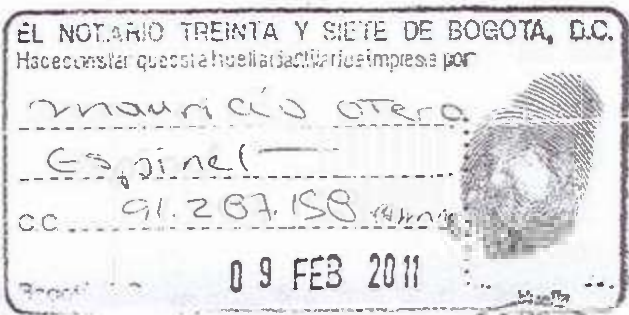 EL NOTARIO TREINTA Y SIETE DE BOGOTA, D.C.
Hace constar que esta huella dactilar fue impresa por
Mauricio Otero
Espinel
C.C. 91.287.158
Bogotá D.C. 09 FEB 2011
Huella